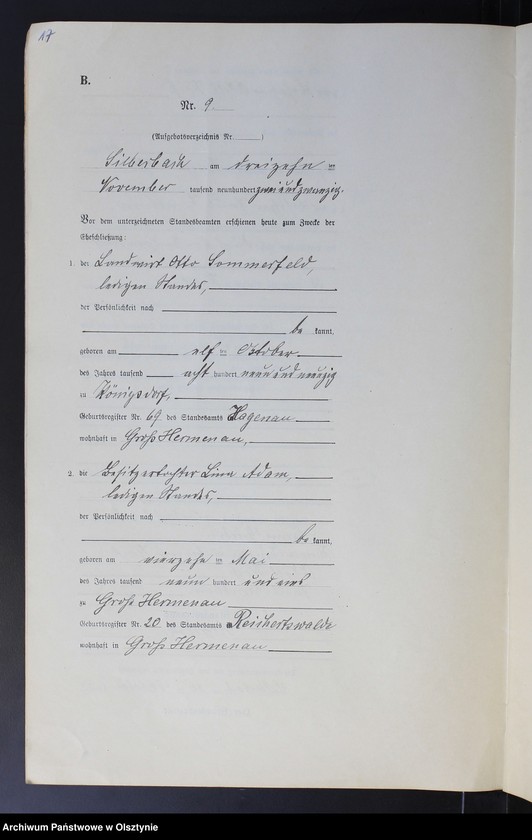 17
B.
Nr. 9
(Aufgebotsverzeichnis Nr. )
Silberbach am dreizehn ten
November tausend neunhundert zwei und zwanzig.
Vor dem unterzeichneten Standesbeamten erschienen heute zum Zwecke der
Eheschließung:
1. der Landwirt Otto Sommerfeld,
ledigen Standes,
der Persönlichkeit nach
be kannt,
geboren am elf ten Oktober
des Jahres tausend acht hundert neun und neunzig
zu Königsdorf,
Geburtsregister Nr. 69 des Standesamts Hagenau
wohnhaft in Groß Hermenau,
2. die Besitzertochter Lina Adam,
ledigen Standes,
der Persönlichkeit nach
be kannt,
geboren am vierzehn ten Mai
des Jahres tausend neun hundert und
zu Groß Hermenau
Geburtsregister Nr. 20 des Standesamts Reichertswalde
wohnhaft in Groß Hermenau
Archiwum Państwowe w Olsztynie